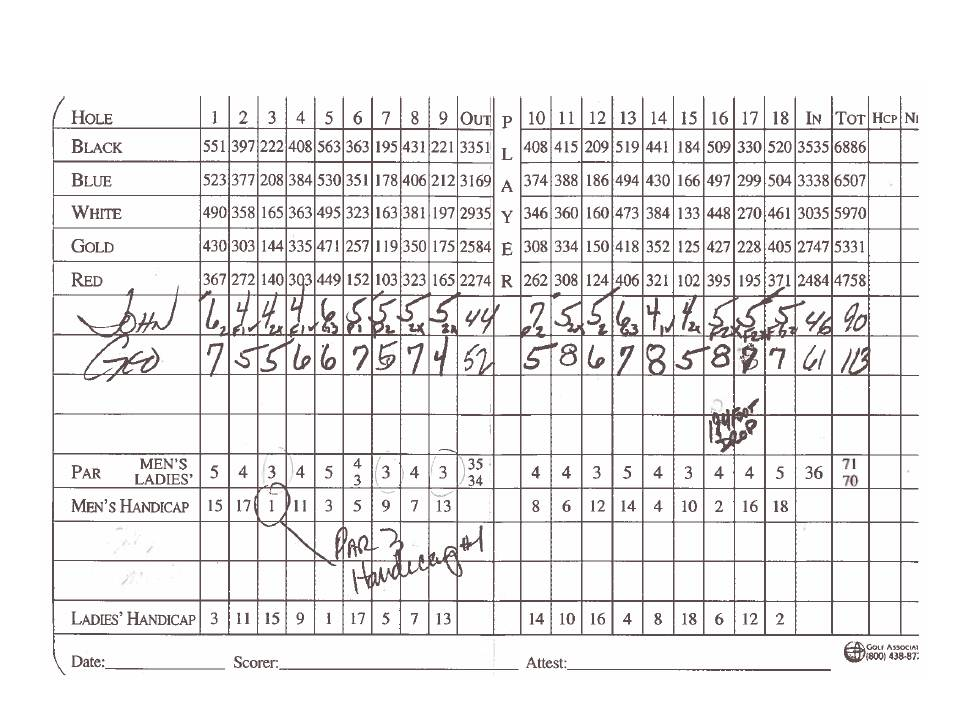 HOLE 1 2 3 4 5 6 7 8 9 OUT PLAYER 10 11 12 13 14 15 16 17 18 IN TOT HCP
BLACK 551 397 222 408 563 363 195 431 221 3351 408 415 209 519 441 184 509 330 520 3535 6886
BLUE 523 377 208 384 530 351 178 406 212 3169 374 388 186 494 430 166 497 299 504 3338 6507
WHITE 490 358 165 363 495 323 163 381 197 2935 346 360 160 473 384 133 448 270 461 3035 5970
GOLD 430 303 144 335 471 257 119 350 175 2584 308 334 150 418 352 125 427 228 405 2747 5331
RED 367 272 140 303 449 152 103 323 165 2274 262 308 124 406 321 102 395 195 371 2484 4758
JOHN 6 4 4 4 6 5 5 5 5 44 7 5 5 6 4 4 5 5 5 46 90
GEO 7 5 5 6 6 7 5 7 4 52 5 8 6 7 8 5 8 8 7 61 113
194 FOOT
DROP
PAR MEN'S LADIES' 5 4 3 4 5 4 3 3 4 3 35 34 4 4 3 5 4 3 4 4 5 36 71 70
MEN'S HANDICAP 15 17 1 11 3 5 9 7 13 8 6 12 14 4 10 2 16 18
PAR 3
Handicap #1
LADIES' HANDICAP 3 11 15 9 1 17 5 7 13 14 10 16 4 8 18 6 12 2
Date: Scorer: Attest:
GOLF ASSOCIAT
(800) 438-87